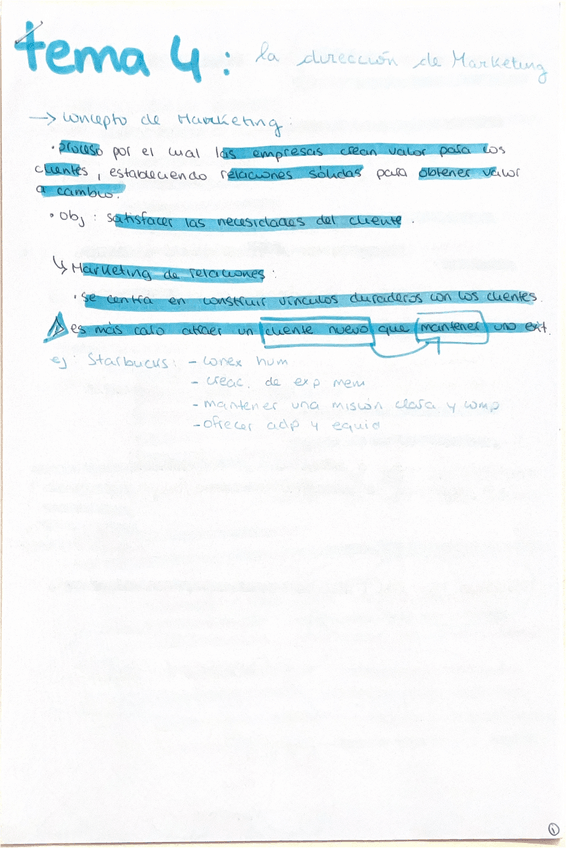 tema 4: la dirección de Marketing
→ concepto de Marketing:
• proceso por el cual las empresas crean valor para los
clientes, estableciendo relaciones sólidas para obtener valor
a cambio.
• Obj: satisfacer las necesidades del cliente.
↳ Marketing de relaciones:
• se centra en construir vínculos duraderos con los clientes
es más caro atraer un cliente nuevo que mantener uno ext.
ej: Starbucks: - conex hum
- creac. de exp mem
- mantener una misión clara y comp
- ofrecer adp y equid
1